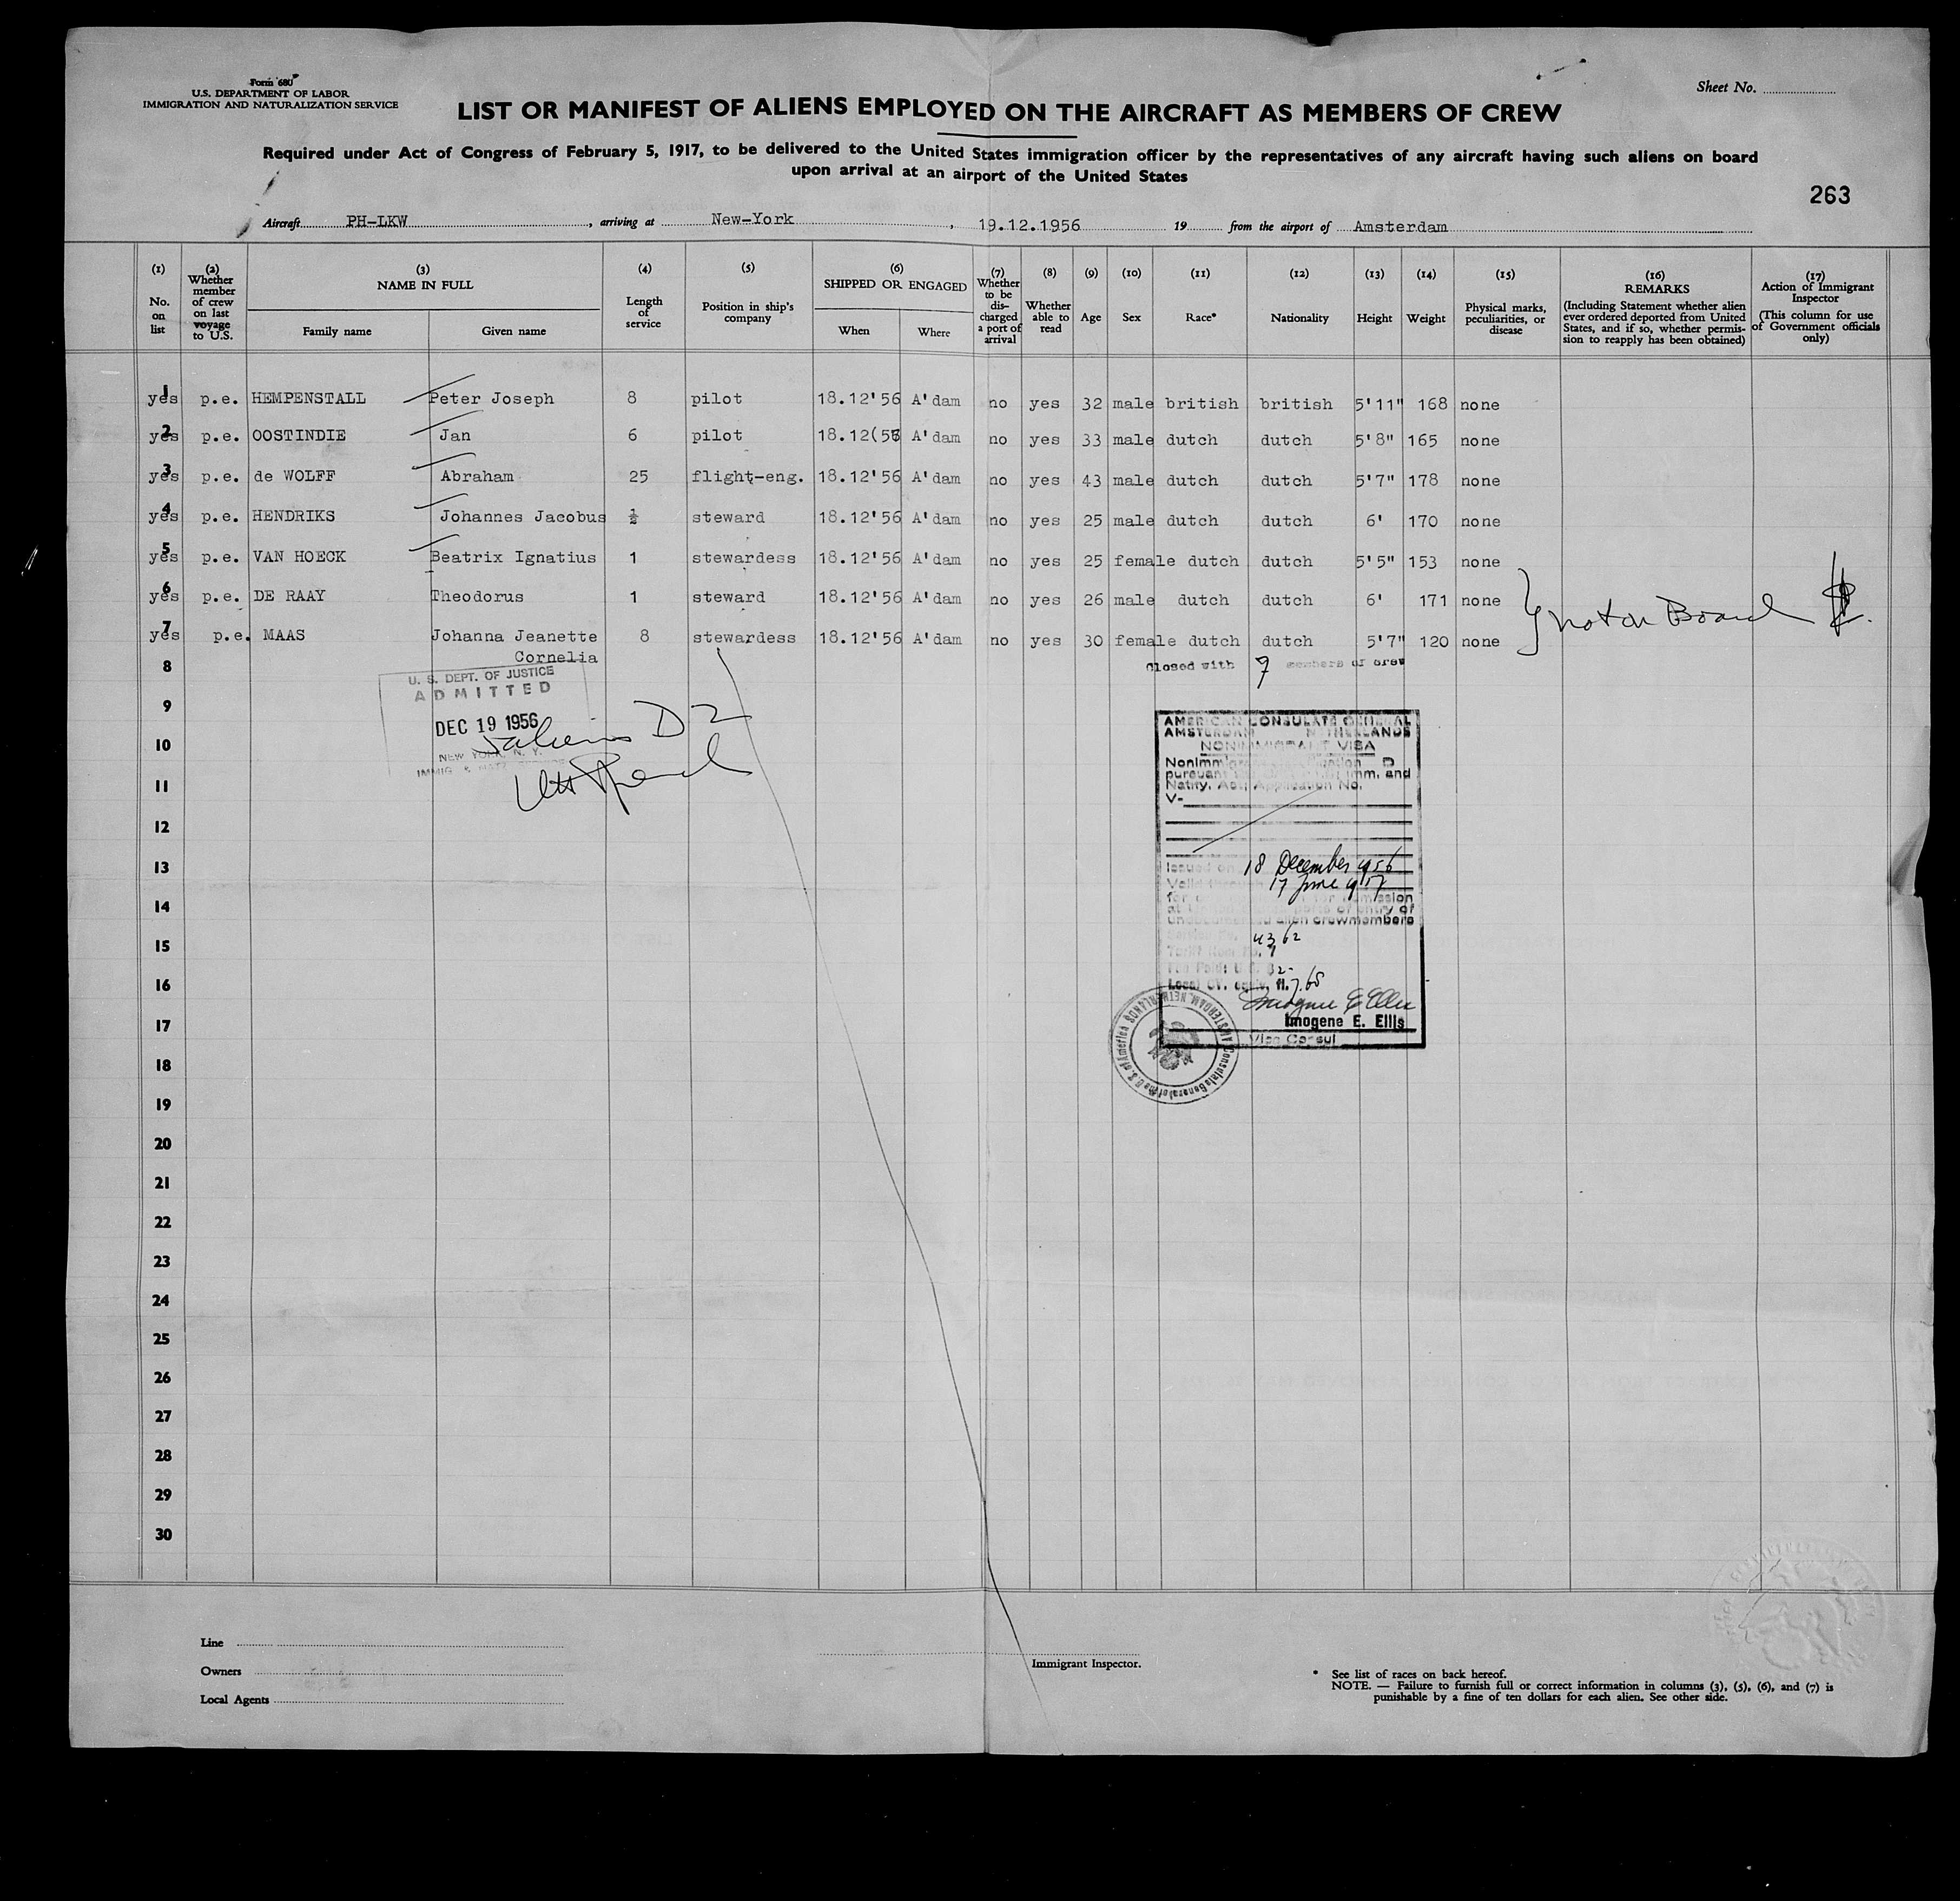 Form 680
U.S. DEPARTMENT OF LABOR
IMMIGRATION AND NATURALIZATION SERVICE
Sheet No.
LIST OR MANIFEST OF ALIENS EMPLOYED ON THE AIRCRAFT AS MEMBERS OF CREW
Required under Act of Congress of February 5, 1917, to be delivered to the United States immigration officer by the representatives of any aircraft having such aliens on board
upon arrival at an airport of the United States
263
Aircraft PH-LKW, arriving at New-York, 19.12.1956 19 from the airport of Amsterdam
(1) No. on list
(2) Whether member of crew on last voyage to U.S.
(3) NAME IN FULL
Family name
Given name
(4) Length of service
(5) Position in ship's company
(6) SHIPPED OR ENGAGED
When
Where
(7) Whether to be discharged a port of arrival
(8) Whether able to read
(9) Age
(10) Sex
(11) Race*
(12) Nationality
(13) Height
(14) Weight
(15) Physical marks, peculiarities, or disease
(16) REMARKS (Including Statement whether alien ever ordered deported from United States, and if so, whether permission to reapply has been obtained)
(17) Action of Immigrant Inspector (This column for use of Government officials only)
1 yes p.e. HEMPENSTALL Peter Joseph 8 pilot 18.12'56 A'dam no yes 32 male british british 5'11" 168 none
2 yes p.e. OOSTINDIE Jan 6 pilot 18.12(56 A'dam no yes 33 male dutch dutch 5'8" 165 none
3 yes p.e. de WOLFF Abraham 25 flight-eng. 18.12'56 A'dam no yes 43 male dutch dutch 5'7" 178 none
4 yes p.e. HENDRIKS Johannes Jacobus ½ steward 18.12'56 A'dam no yes 25 male dutch dutch 6' 170 none
5 yes p.e. VAN HOECK Beatrix Ignatius 1 stewardess 18.12'56 A'dam no yes 25 female dutch dutch 5'5" 153 none
6 yes p.e. DE RAAY Theodorus 1 steward 18.12'56 A'dam no yes 26 male dutch dutch 6' 171 none
not on Board
7 yes p.e. MAAS Johanna Jeanette 8 stewardess 18.12'56 A'dam no yes 30 female dutch dutch 5'7" 120 none
Cornelia
8
Closed with 7 members of crew
U. S. DEPT. OF JUSTICE
ADMITTED
DEC 19 1956
NEW YORK, N. Y.
D 2
9
10
11
12
13
14
15
16
17
18
19
20
21
22
23
24
25
26
27
28
29
30
AMERICAN CONSULATE GENERAL
AMSTERDAM NETHERLANDS
NONIMMIGRANT VISA
Imm. and
Natlty. Act; Application No.
V-
Issued on 18 December 1956
17 June 1957
alien crewmembers
4362
Tariff Item No. 7
Fee Paid: U.S. $2-
Local Cy. equiv. fl. 7.60
Imogene E. Ellis
Imogene E. Ellis
Vice Consul
Consulate General of the U. S. of America AMSTERDAM, NETHERLANDS
Line
Owners
Local Agents
Immigrant Inspector.
* See list of races on back hereof.
NOTE. — Failure to furnish full or correct information in columns (3), (5), (6), and (7) is
punishable by a fine of ten dollars for each alien. See other side.